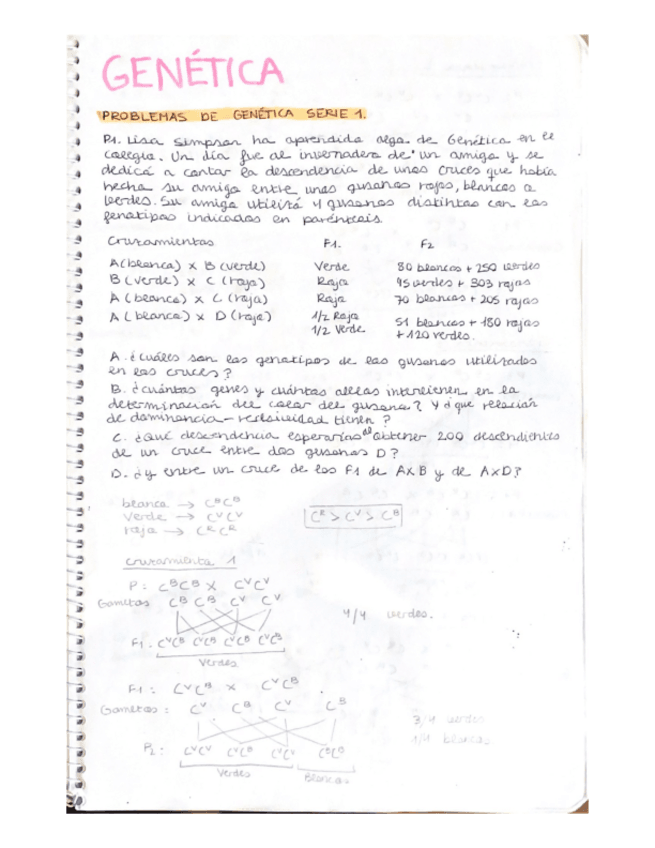 GENÉTICA
PROBLEMAS DE GENÉTICA SERIE 1.
P1. Lisa Simpson ha aprendido algo de Genética en el
colegio. Un día fue al invernadero de un amigo y se
dedicó a contar la descendencia de unos cruces que había
hecho su amigo entre unos gusanos rojos, blancos o
verdes. Su amigo utilizó 4 gusanos distintos con los
fenotipos indicados en paréntesis.
Cruzamientos F1. F2
A (blanco) x B (verde) Verde 80 blancos + 250 verdes
B (verde) x C (rojo) Rojo 95 verdes + 303 rojos
A (blanco) x C (rojo) Rojo 70 blancos + 205 rojos
A (blanco) x D (rojo) 1/2 Rojo 51 blancos + 180 rojos
1/2 Verde + 120 verdes.
A. ¿cuáles son los genotipos de los gusanos utilizados
en los cruces?
B. ¿cuántos genes y cuántos alelos intervienen en la
determinación del color del gusano? Y ¿que relación
de dominancia-recesividad tienen?
C. ¿Qué descendencia esperarías de obtener 200 descendientes
de un cruce entre dos gusanos D?
D. ¿y entre un cruce de los F1 de AxB y de AxD?
blanco → CᴮCᴮ
Verde → CⱽCⱽ
rojo → CᴿCᴿ
Cᴿ > Cⱽ > Cᴮ
cruzamiento 1
P: CᴮCᴮ x CⱽCⱽ
Gametos Cᴮ Cᴮ Cⱽ Cⱽ
4/4 verdes.
F1: CⱽCᴮ CⱽCᴮ CⱽCᴮ CⱽCᴮ
Verdes
F1: CⱽCᴮ x CⱽCᴮ
Gametos: Cⱽ Cᴮ Cⱽ Cᴮ
3/4 verdes
1/4 blancos
F2: CⱽCⱽ CⱽCᴮ CⱽCⱽ CᴮCᴮ
Verdes Blancos